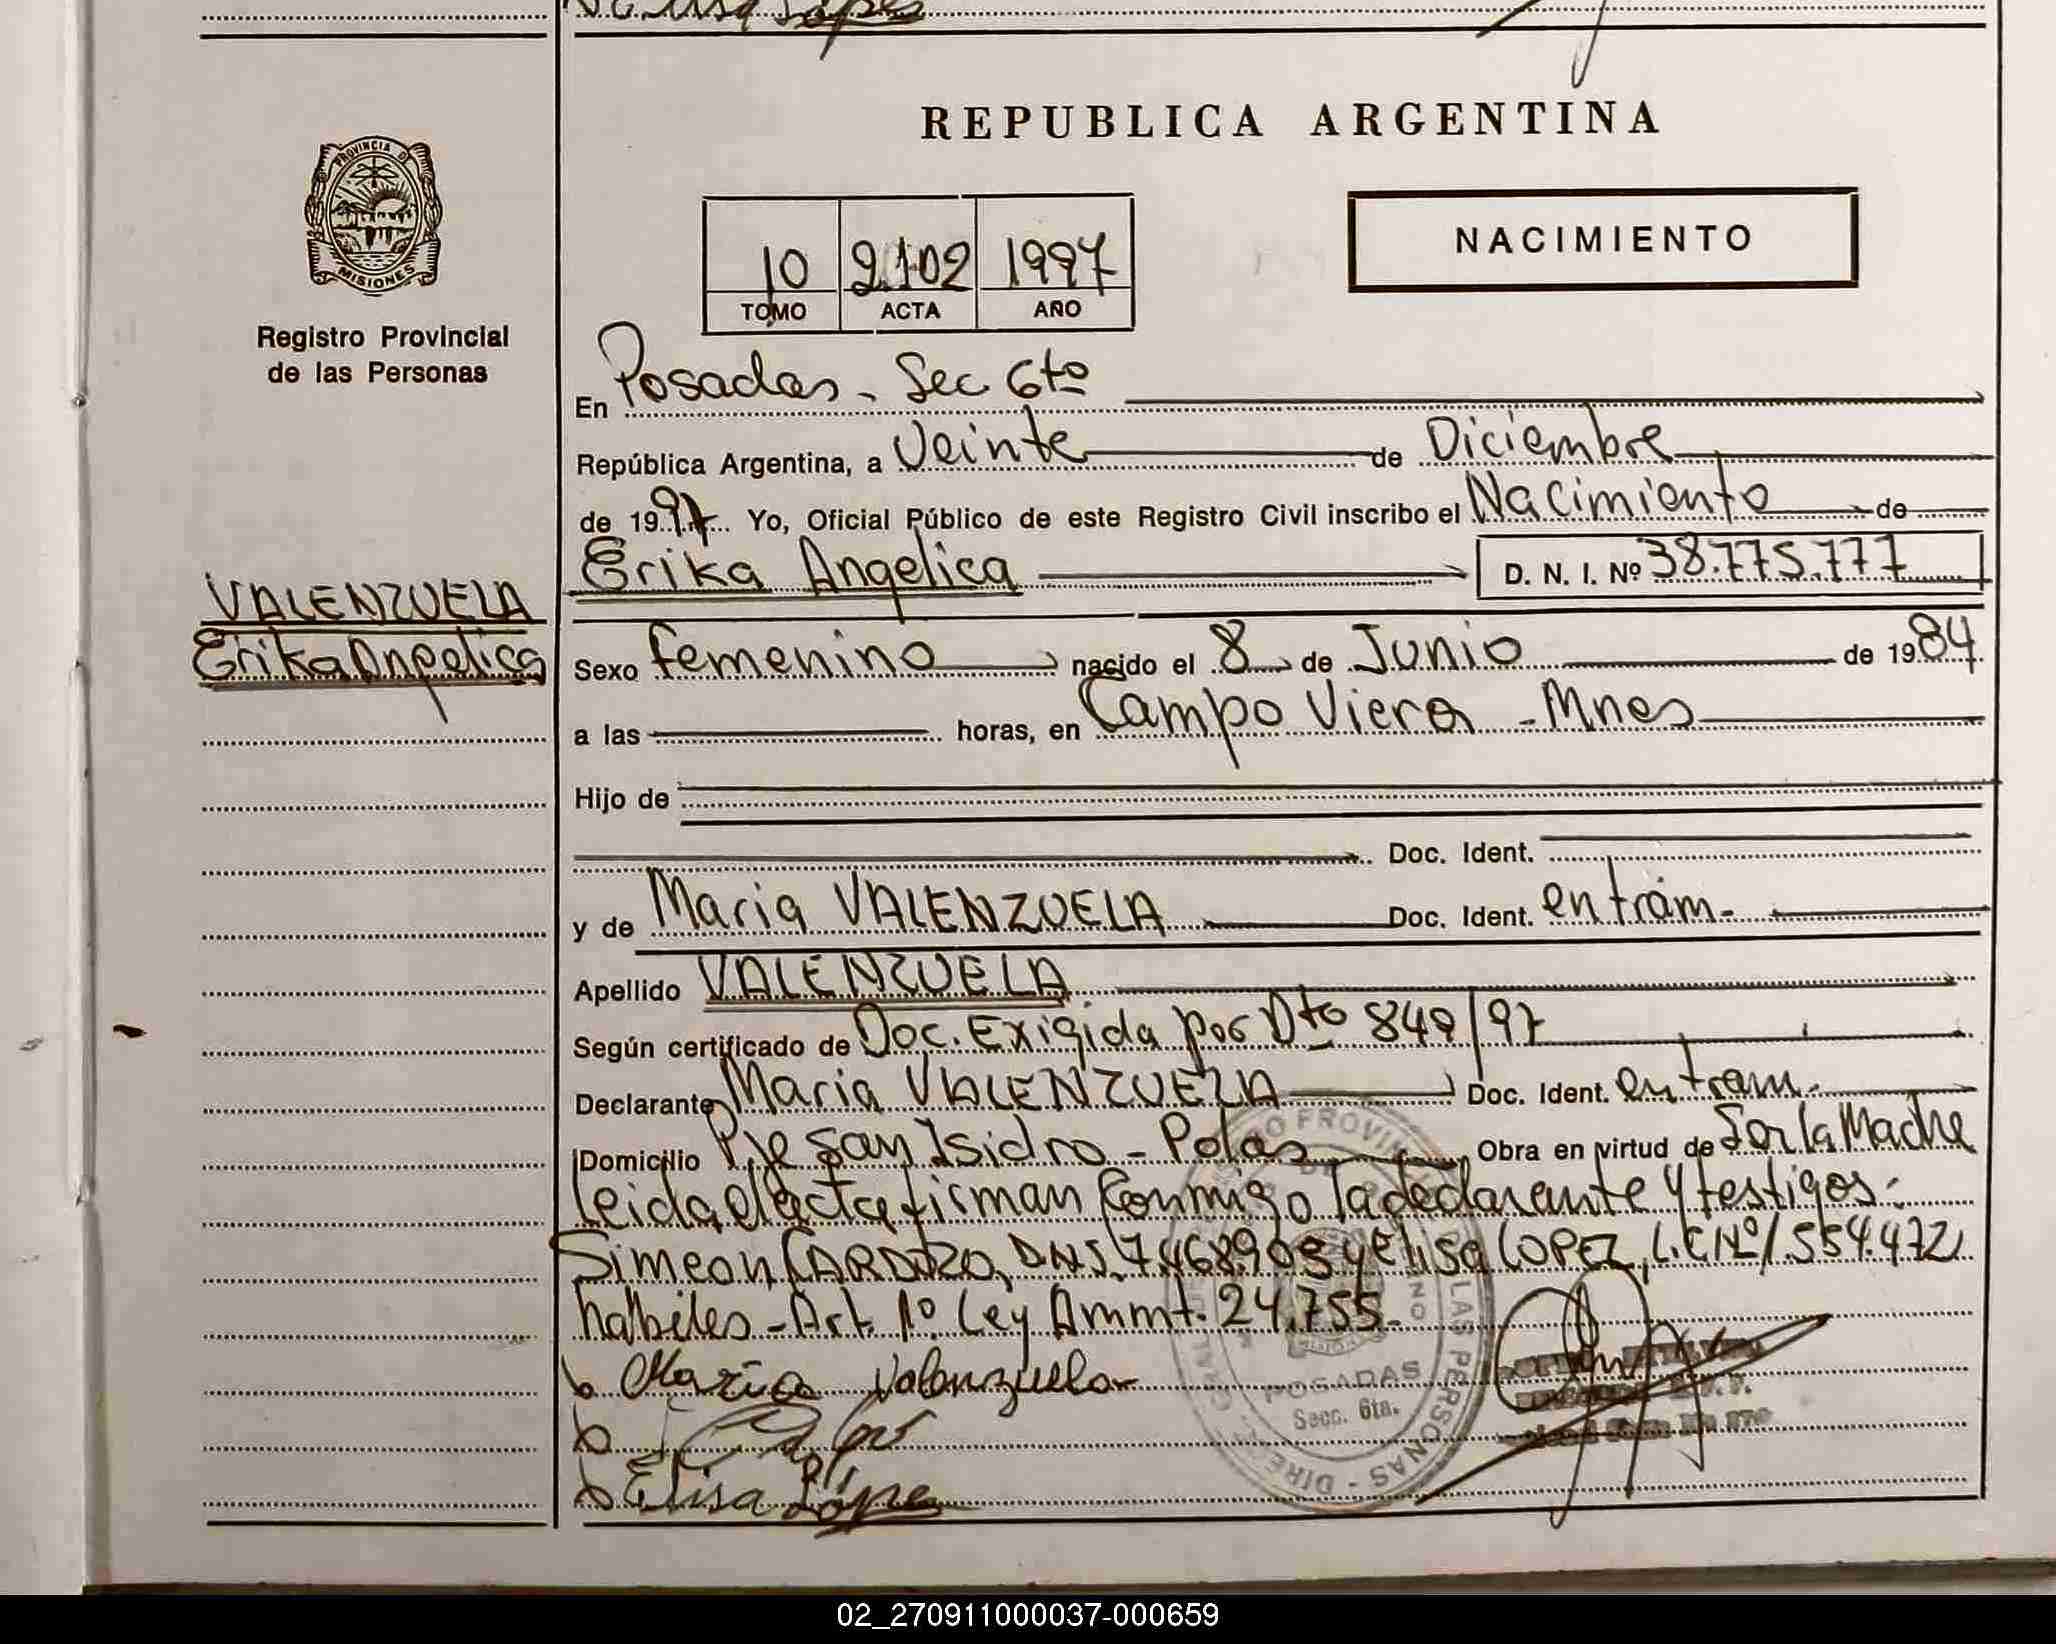 Elisa López
PROVINCIA DE
MISIONES
Registro Provincial
de las Personas
REPUBLICA ARGENTINA
NACIMIENTO
10 2.102 1997
TOMO ACTA AÑO
En Posadas - Sec 6ta
República Argentina, a Veinte de Diciembre
de 1997 Yo, Oficial Público de este Registro Civil inscribo el Nacimiento de
Erika Angelica D. N. I. Nº 38.775.777
VALENZUELA
Erika Angelica
Sexo femenino nacido el 8 de Junio de 1984
a las horas, en Campo Viera - Mnes
Hijo de
Doc. Ident.
y de Maria VALENZUELA Doc. Ident. en trám.
Apellido VALENZUELA
Según certificado de Doc. Exigida por Dto 849/97
Declarante Maria VALENZUELA Doc. Ident. en tram.
Domicilio Pje San Isidro - Pdas Obra en virtud de Ser la Madre
leida el acta firman conmigo la declarante y testigos:
Simeon CARDOZO, DNI. 7.468.903 y Elisa LOPEZ, L.C Nº 1.554.472
habiles - Art. 1º Ley Ammt. 24.755.
Maria Valenzuela
Elisa López
POSADAS
Secc. 6ta.
LAS PERSONAS
02_270911000037-000659